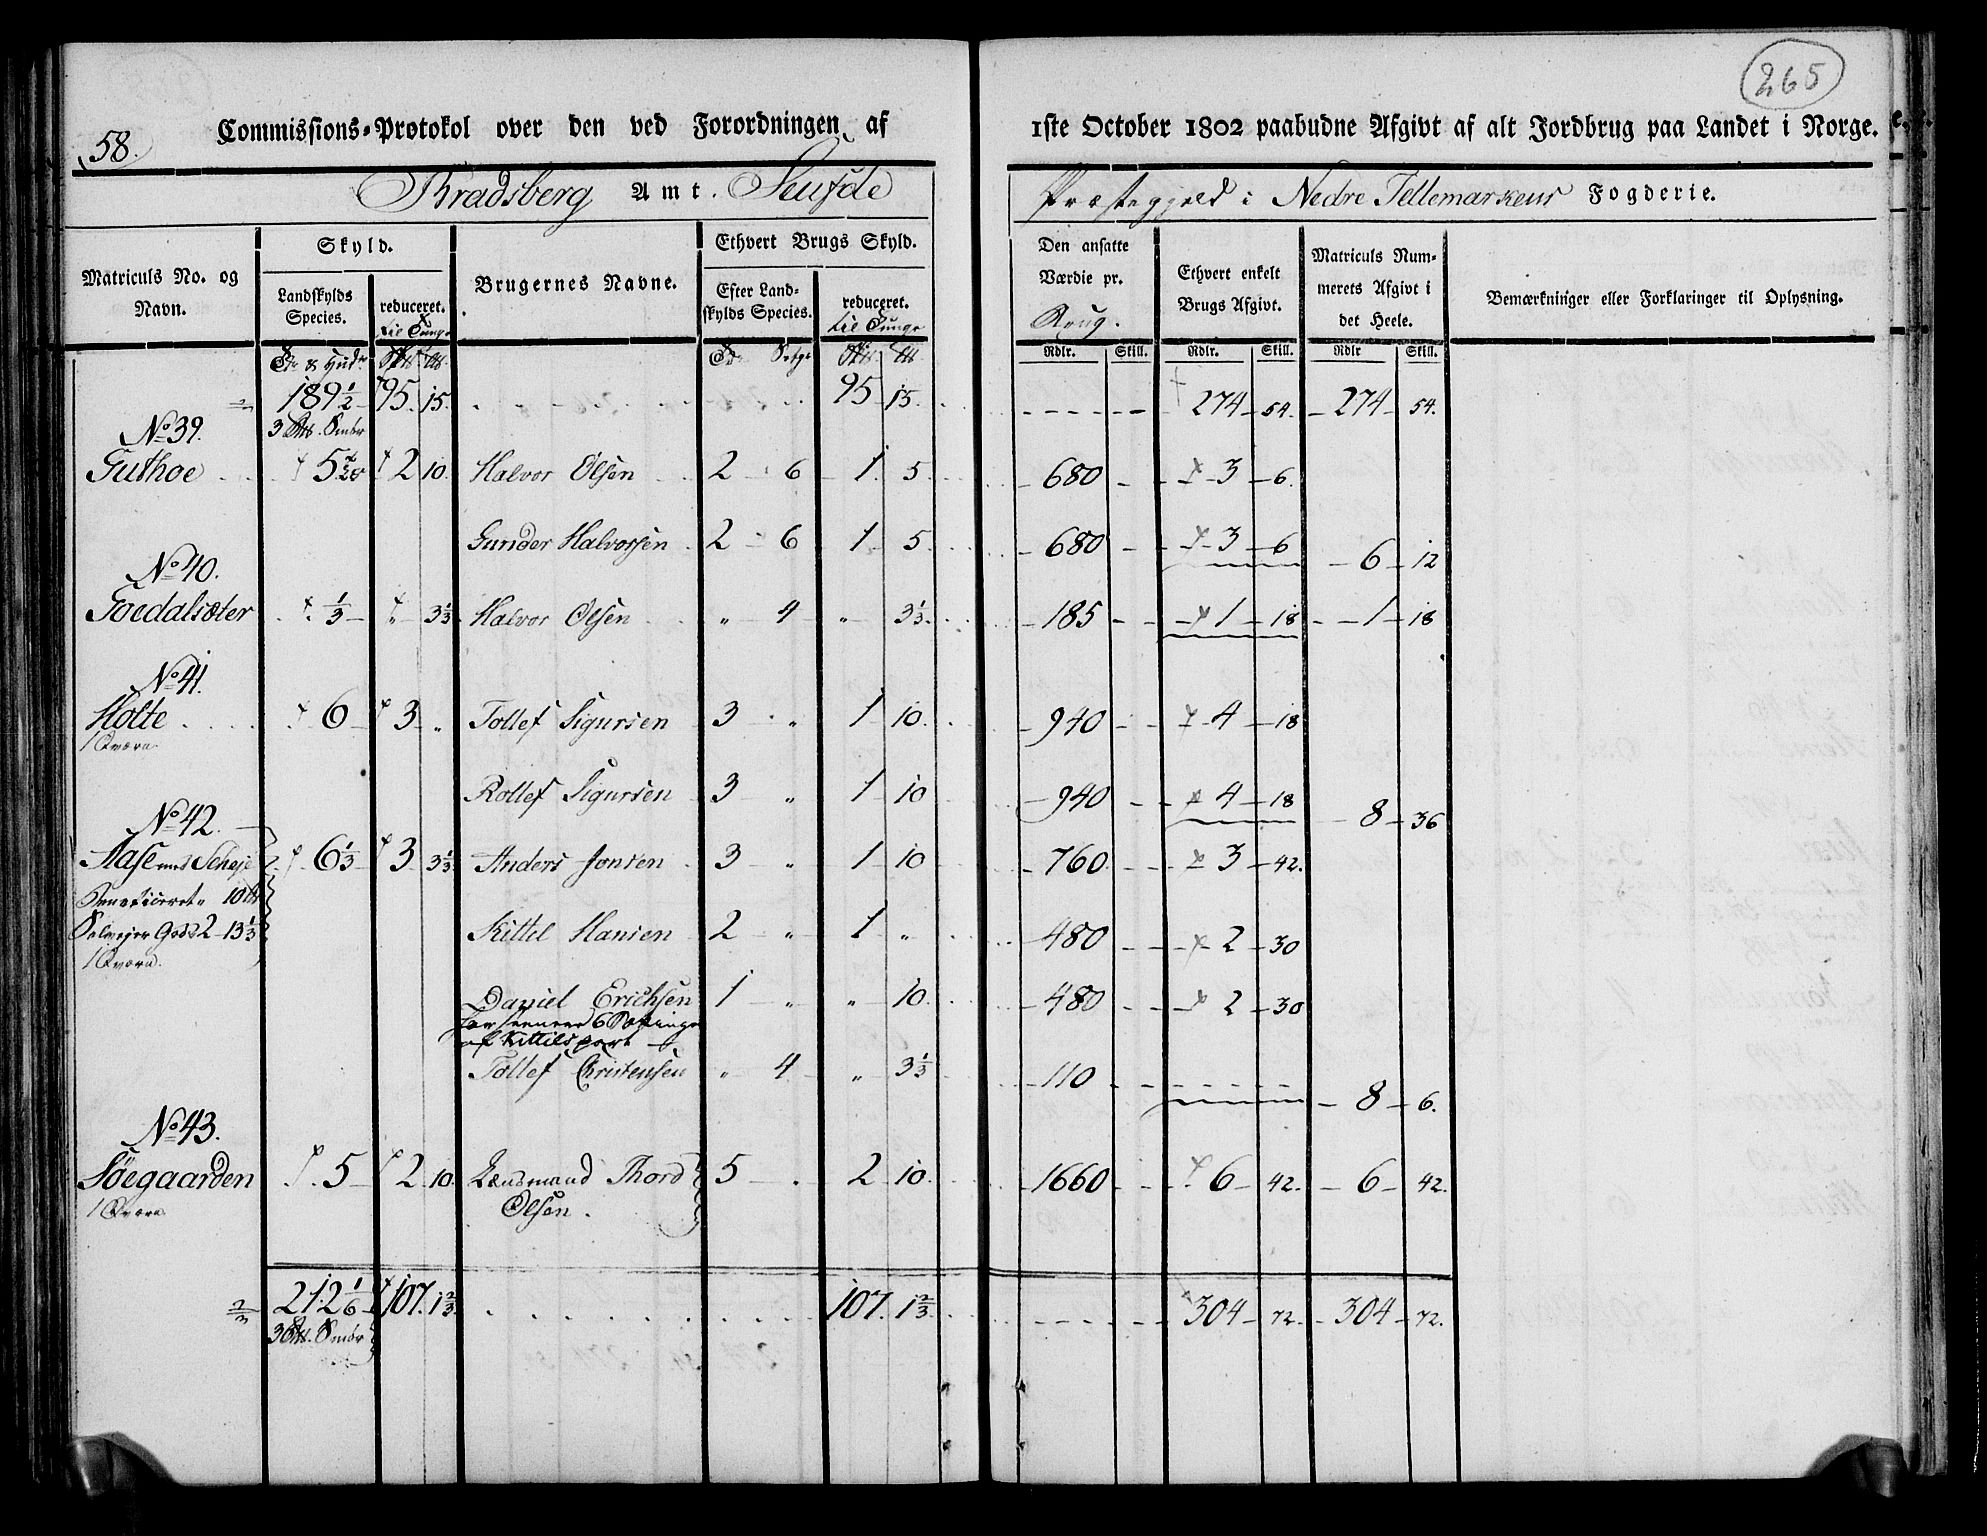 265
58.
Commissions=Protokol over den ved Forordningen af 1ste October 1802 paabudne Afgivt af alt Jordbrug paa Landet i Norge.
Bradsberg Amt. Seufde Præstegjeld i Nedre Tellemarkens Fogderie.
Matriculs No. og Navn.
Skyld.
Landskylds Species.
reduceret.
til Tunge
Brugernes Navne.
Ethvert Brugs Skyld.
Efter Landskylds Species.
reduceret.
til Tunge
Den ansatte Værdie pr.
Brug.
Ethvert enkelt Brugs Afgivt.
Matriculs Nummerets Afgivt i det Heele.
Bemærkninger eller Forklaringer til Oplysning.
Rdlr. Skill. Rdlr. Skill. Rdlr Skill.
189 1/2 95. 15. 95 15. 274 54. 274 54.
3 Smör
No 39.
Guthoe 5 2 10. Halvor Olsen 2 6 1. 5. 680 3 6.
Gunder Halvorsen 2 6 1 5. 680 3 6 6 12
No 40.
Goedalsæter 1/3 " 3 1/3 Halvor Olsen " 4 " 3 1/3. 185 1 18 1 18
No 41.
Holte 6 3 " Tollef Sigursen 3 " 1 10. 940 4 18
1 Qværn
Rollef Sigursen 3 " 1 10 940 4 18 8 36
No 42.
Aase med Scheje 6 1/3 3 3 1/3 Anders Jonsen 3 " 1 10 760. 3 42.
Beneficeret " 10
Selvejer Gods 2 13 1/3
1 Qværn.
Kittel Hansen 2 " 1 " 480 2 30
Daniel Erichsen 1 " " 10. 480 2 30
6
af Kittils part
Tollef Christensen " 4 " 3 1/3 110 8 6.
No 43.
Söegaarden 5 2 10. Lænsmand Thord Olsen. 5 2 10. 1660 6 42. 6 42.
1 Qværn
212 1/6 107. 1 2/3. 107. 1 2/3 304 72. 304 72.
3 Smör